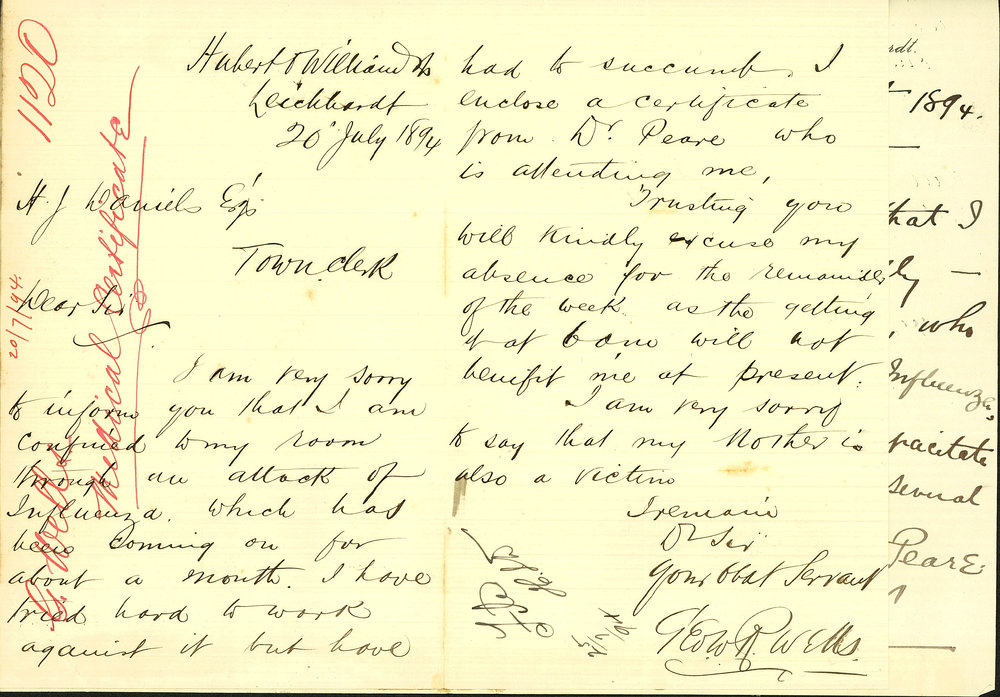 Hubert & William Sts
Leichhardt
20 July 1894
H J Daniels Esq
Town Clerk
Dear Sir
I am very sorry
to inform you that I am
confined to my room
through an attack of
Influenza. which has
been coming on for
about a month. I have
tried hard to work
against it but have
had to succumb. I
enclose a certificate
from Dr. Peare who
is attending me,
Trusting you
will kindly excuse my
absence for the remainder
of the week. as the getting
at 6 am will not
benifit me at present.
I am very sorry
to say that my Mother is
also a victim
I remain
Dr Sir
Your Obdt Servant
Geo W R. Wells.
1120
G. Wells
Medical Certificate
20/7/94
rdt.
1894.
hat I
ly
, who
Influenza,
pacitate
several
Peare.